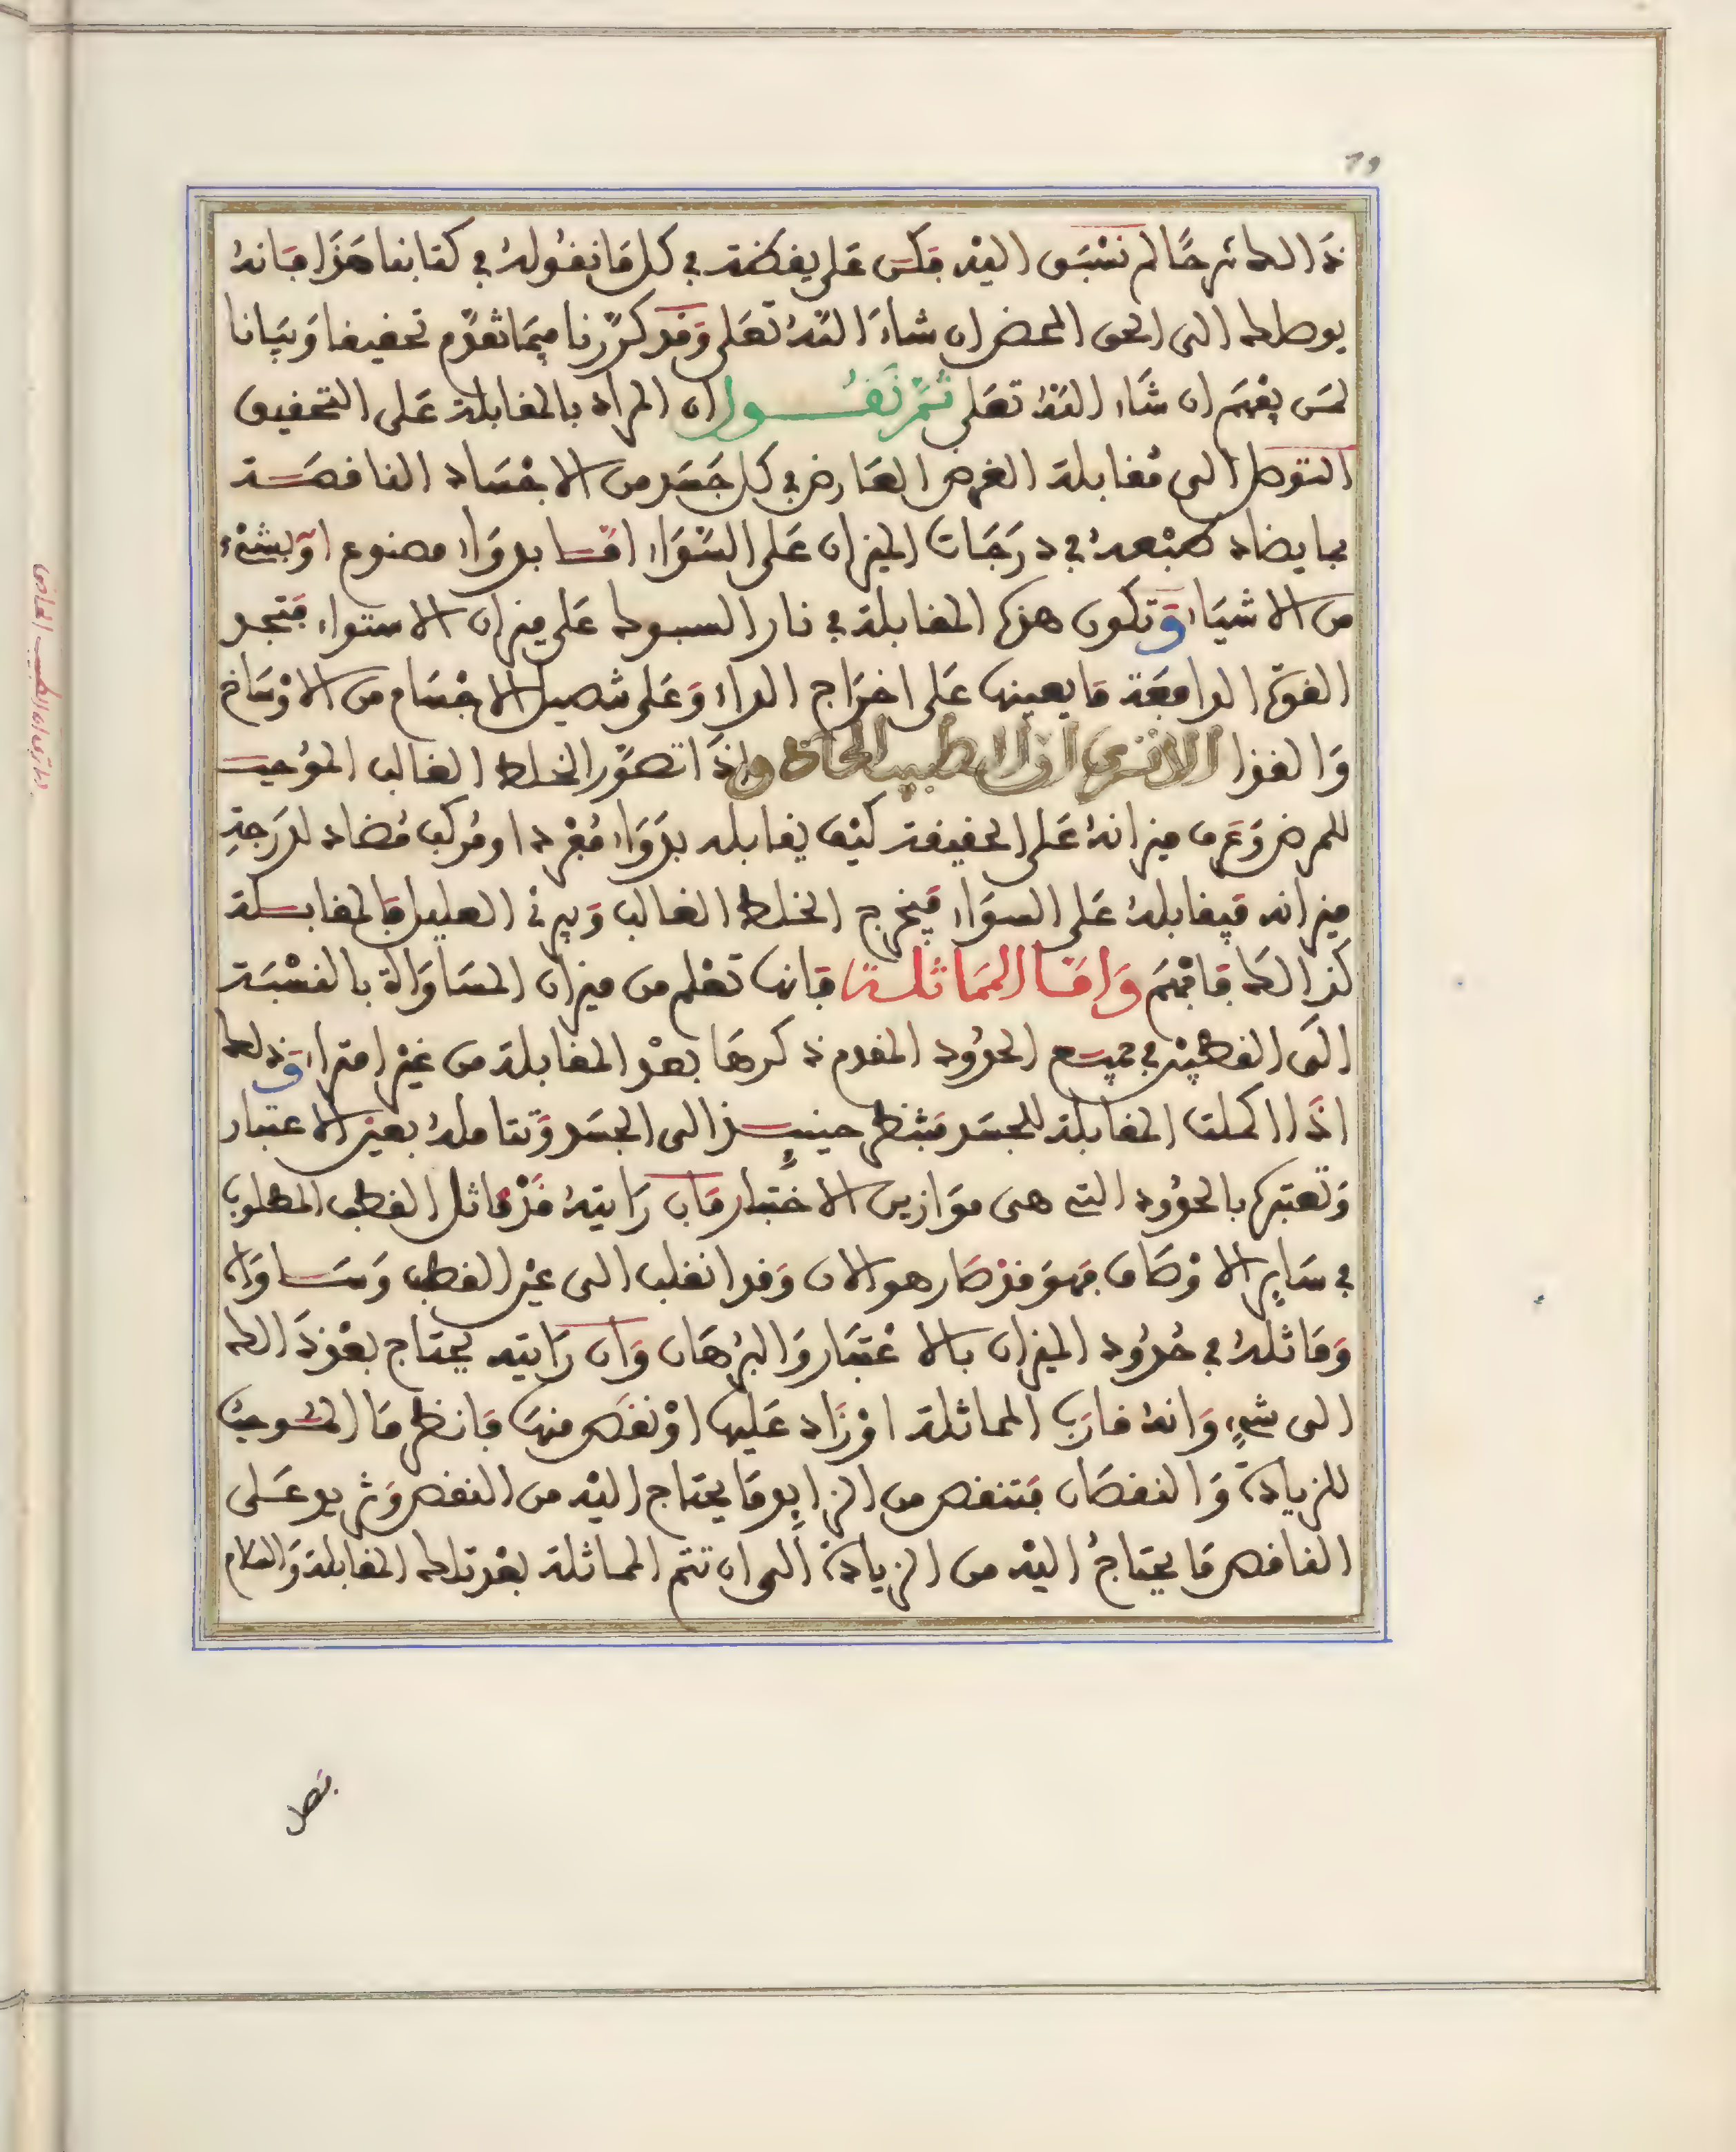 ذالك شرحا لم نسبق اليه فكن على يقظة في كل ما نقوله في كتابنا هذا فانه
يوصلك الى الحق المحض ان شاء الله تعلى وقد كررنا فيما تقدم تحقيقا وبيانا
لمن يفهم ان شاء الله تعلى ثم نقول ان المراد بالمقابلة على التحقيق
التوصل الى مقابلة الغرض العارض في كل جسد من الاجساد الناقصة
بما يضاد طبعه في درجات الميزان على السواء اما بدواء مصنوع او بشيء
من الاشياء وتكون هذه المقابلة في نار السبوك على ميزان الاستواء فتجد
القوة الدافعة ما يعينها على اخراج الداء وعلى تحصيل الاجسام من الاوساخ
والقذا الا ترى ان الطبيب الحاذق اذا تصور الخلط الغالب الموجب
للمرض وعرف ميزانه على الحقيقة كيف يقابله بدواء مفردا ومركب مضاد لدرجة
ميزانه فيقابله على السواء فيخرج الخلط الغالب ويبرئ العليل فالمقابلة
كذالك فافهم واما المماثلة فانها تعلم من ميزان المساواة بالنسبة
الى القطبين في جميع الحدود المقدم ذكرها بعد المقابلة من غير امتراء وذلك
اذا اكملت المقابلة للجسد فتنظر حينئذ الى الجسد وتتامله بعين الاعتبار
وتعتبره بالحدود التي هي موازين الاختبار فان رايته قد ماثل القطب المطلوب
في ساير الاوصاف فهو قد صار هو الان وقد انقلب الى عين القطب وساواه
وماثله في حدود الميزان بالاعتبار والبرهان وان رايته يحتاج بعد ذالك
الى شيء وانه قارب المماثلة او زاد عليها او نقص منها فانظر ما الموجب
للزيادة والنقصان فتنقص من الزايد ما يحتاج اليه من النقص وتزيد على
الناقص ما يحتاج اليه من الزيادة الى ان تتم المماثلة بعد تلك المقابلة والسلام
فصل